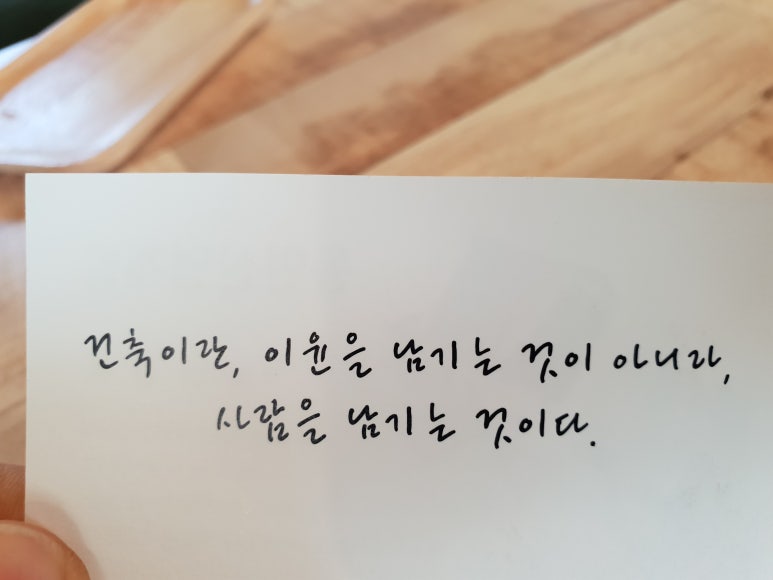 건축이란, 이윤을 남기는 것이 아니라,
사람을 남기는 것이다.